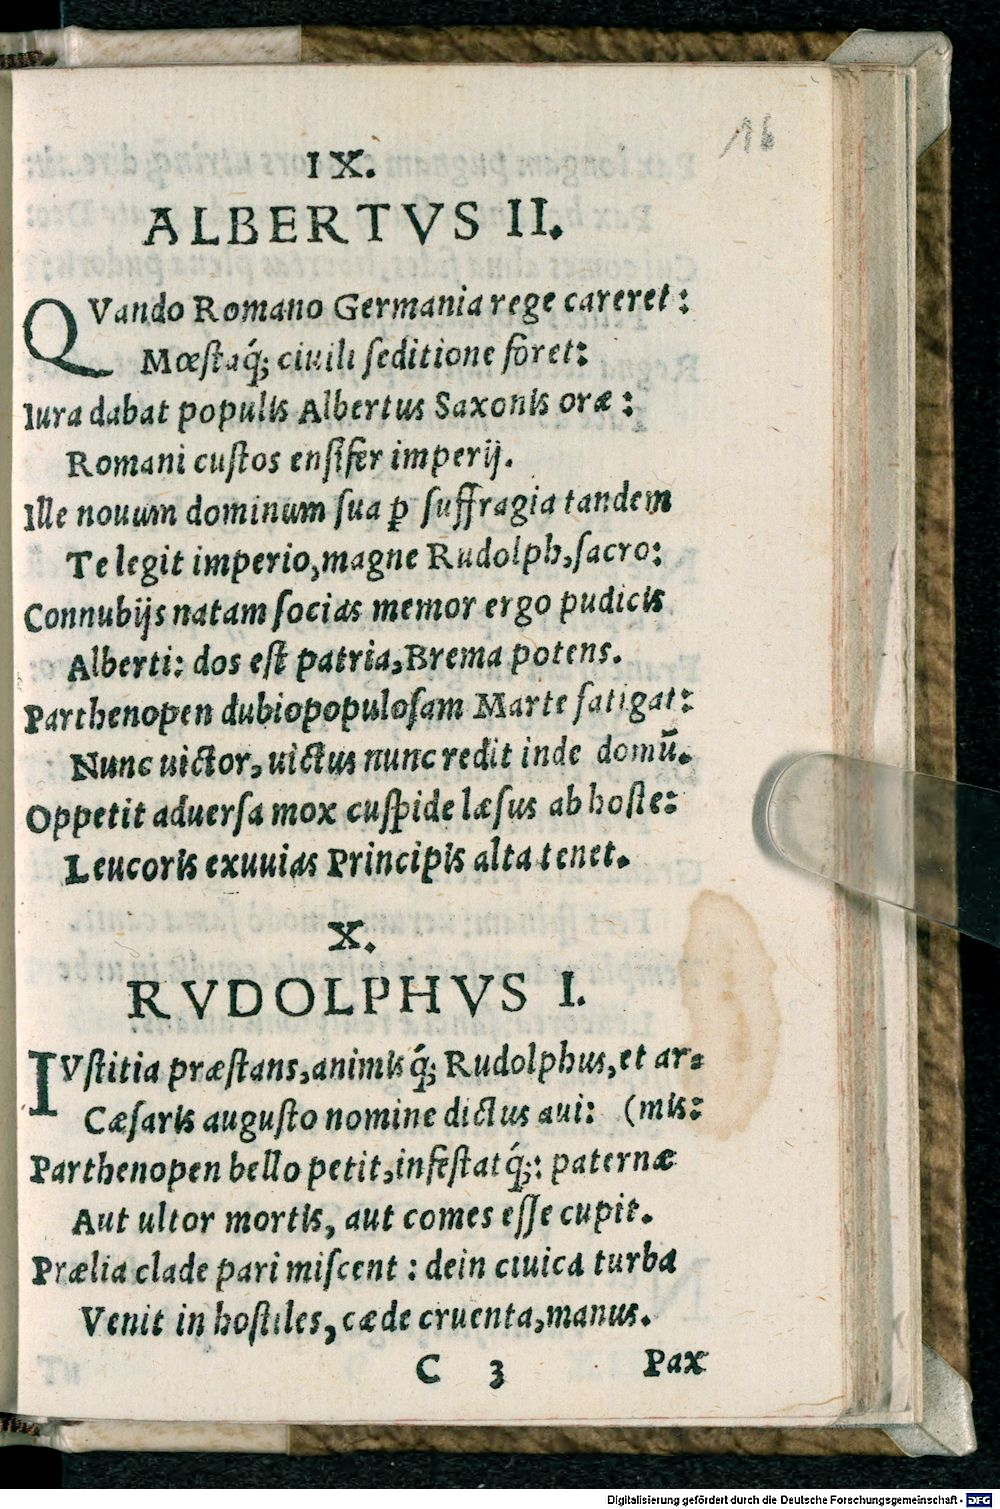 16
IX.
ALBERTVS II.
QVando Romano Germania rege careret:
Mœſtaq́; ciuili ſeditione foret:
Iura dabat populis Albertus Saxonis oræ:
Romani cuſtos enſifer imperij.
Ille nouum dominum ſua ꝑ ſuffragia tandem
Te legit imperio, magne Rudolph, ſacro:
Connubijs natam ſocias memor ergo pudicis
Alberti: dos eſt patria, Brema potens.
Parthenopen dubio populoſam Marte fatigat:
Nunc uictor, uictus nunc redit inde domū.
Oppetit aduerſa mox cuſpide læſus ab hoſte:
Leucoris exuuias Principis alta tenet.
X.
RVDOLPHVS I.
IVſtitia præſtans, animisq́; Rudolphus, et ar-
Cæſaris auguſto nomine dictus aui: (mis:
Parthenopen bello petit, infeſtatq́;: paternæ
Aut ultor mortis, aut comes eſſe cupit.
Prælia clade pari miſcent: dein ciuica turba
Venit in hoſtiles, cæde cruenta, manus.
C 3 Pax
Digitalisierung gefördert durch die Deutsche Forschungsgemeinschaft - DFG